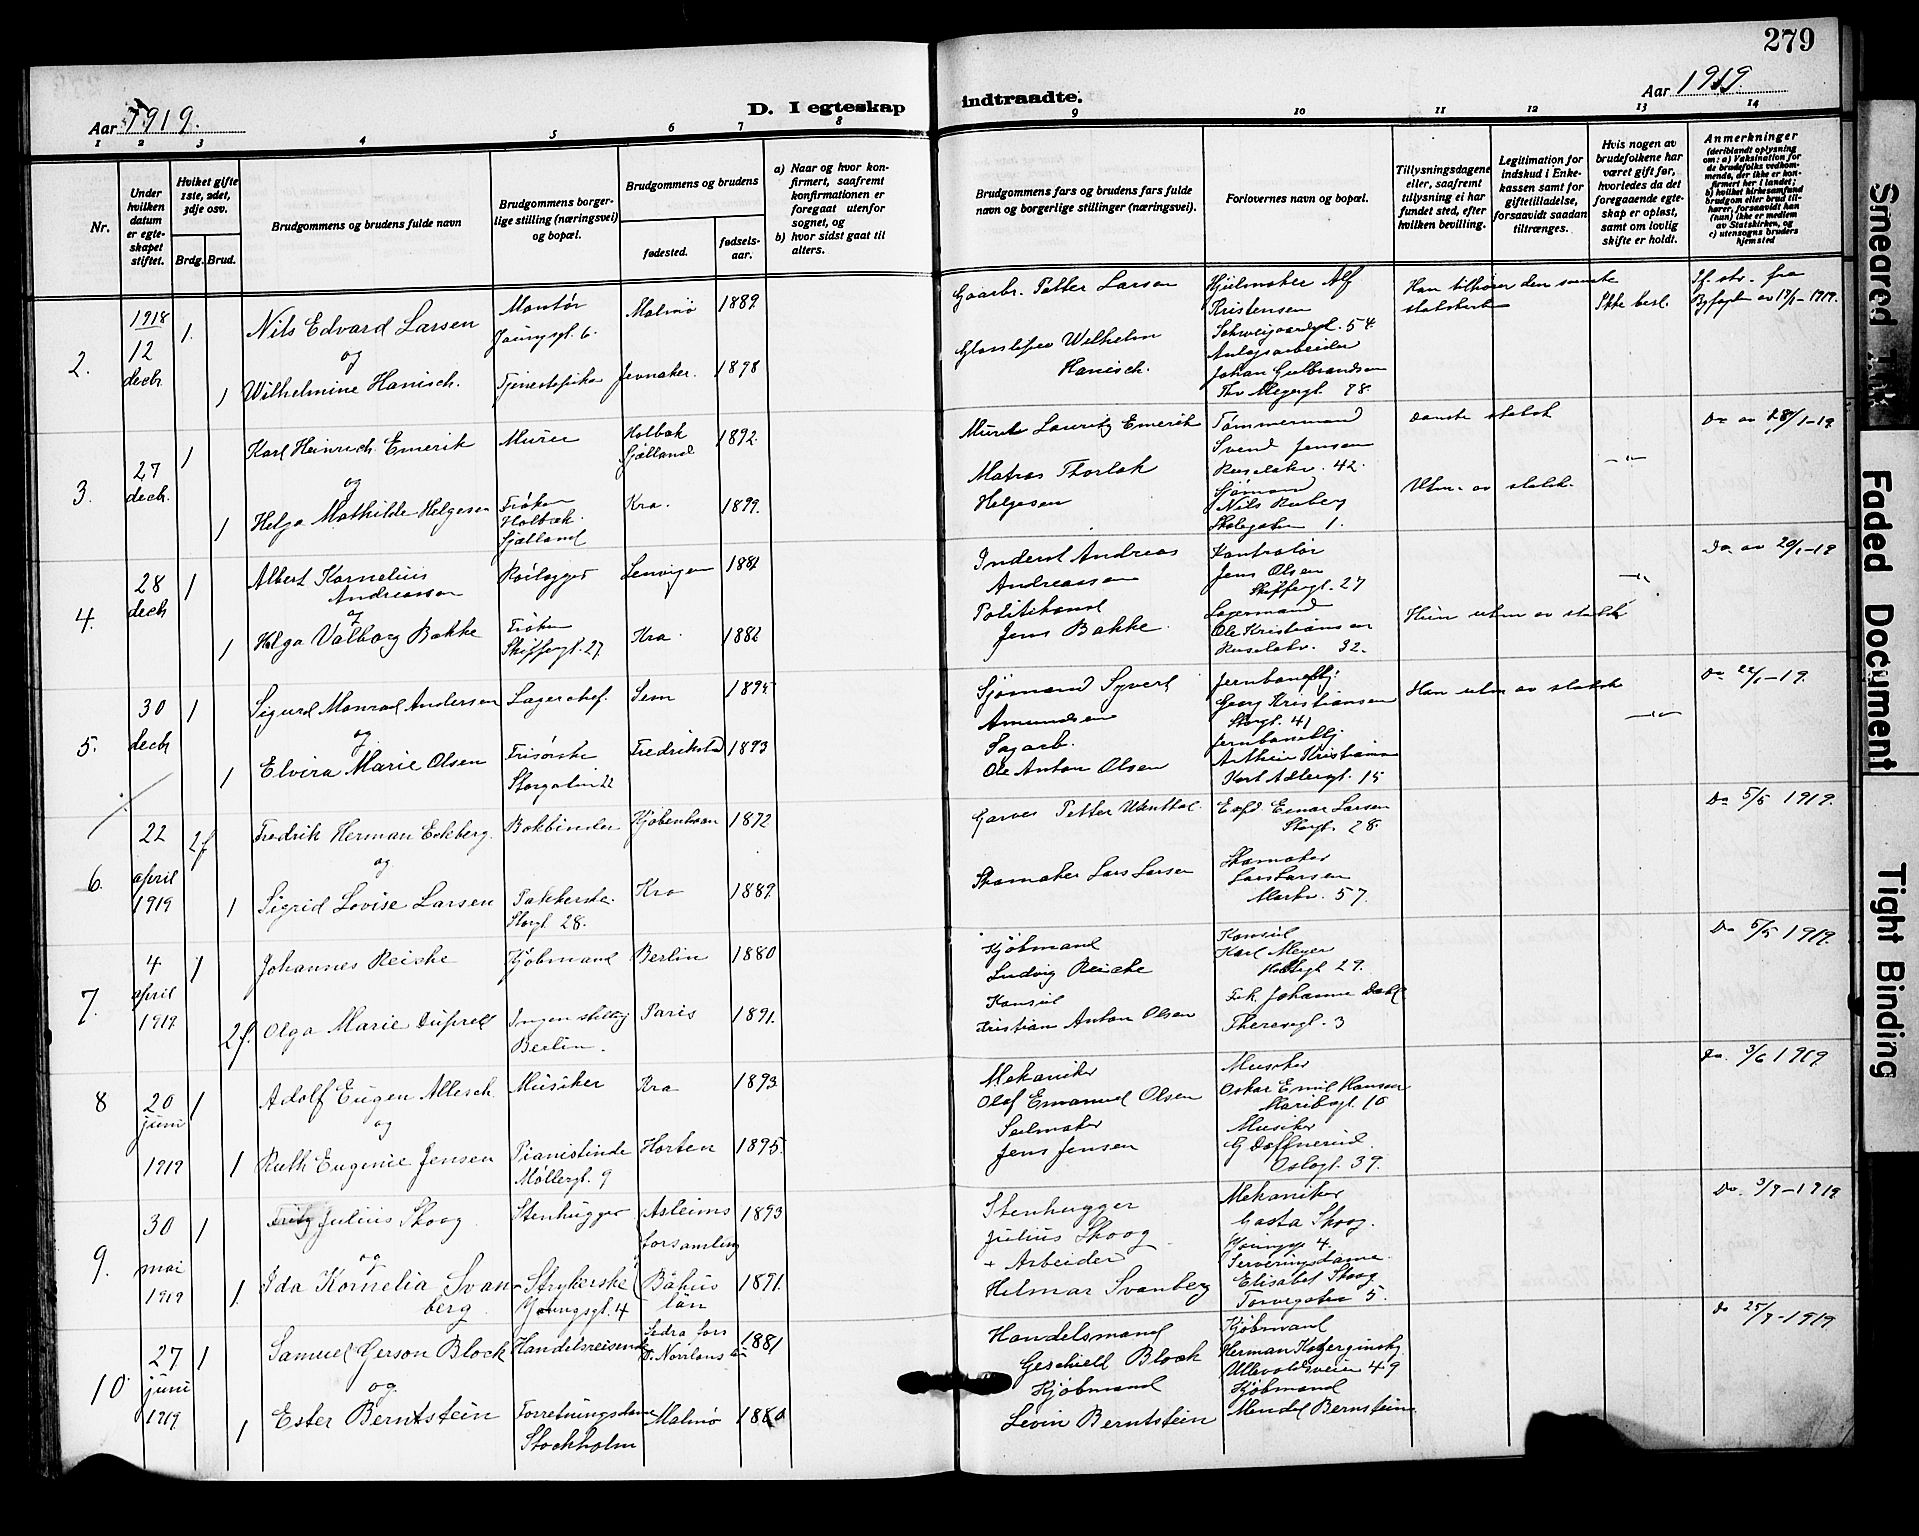 279
Aar 1919.
D. I egteskap
indtraadte.
Aar 1919.
1 2 3 4 5 6 7 8 9 10 11 12 13 14
Nr.
Under hvilken datum er egteskapet stiftet.
Hviket gifte 1ste, 2det, 3dje osv.
Brdg. Brud.
Brudgommens og brudens fulde navn
Brudgommens borgerlige stilling (næringsvei) og bopæl.
Brudgommens og brudens
fødested.
fødselsaar.
a) Naar og hvor konfirmert, saafremt konfirmationen er foregaat utenfor sognet, og
b) hvor sidst gaat til alters.
Brudgommens fars og brudens fars fulde navn og borgerlige stillinger (næringsvei).
Forlovernes navn og bopæl.
Tillysningsdagene eller, saafremt tillysning ei har fundet sted, efter hvilken bevilling.
Legitimation for indskud i Enkekassen samt for giftetilladelse, forsaavidt saadan tiltrænges.
Hvis nogen av brudefolkene har været gift før, hvorledes da det foregaaende egteskap er opløst, samt om lovlig skifte er holdt.
Anmerkninger
(deriblandt oplysning om: a) Vaksination for de brudefolks vedkommende, der ikke er konfirmert her i landet; b) hvilket kirkesamfund brudgom eller brud tilhører, forsaavidt han (hun) ikke er medlem av Statskirken, og c) utensogns bruders hjemsted
2. 1918 12 decbr. 1. Nils Edvard Larsen Montør Youngsgt. 6. Malmø 1889 Gaarbr. Petter Larsen Hjulmaker Alf Kristensen Schweigaardsgt. 54. Han tilhører den svenske statskirke Ikke besl.
og
1 Wilhelmine Hanisch. Tjenestepike Jevnaker. 1898 Wilhelm Hanisch. Anlegsarbeider Johan Gulbrandsen Thv Meyersgt. 78
3. 27 decbr. 1 Karl Heinrich Emerik Murer Holbæk Sjælland 1892. Murer Lauritz Emerik Tømmermand Svend Jensen 42. Danske statsk Do av 28/1-19.
og
1 Helga Mathilde Helgesen Frøken Holbæk. Sjælland Kra. 1899. Matros Thorlak Helgesen Sjømand Nils Ruberg Skolegaten 1. Utm. av statsk.
4. 28 decbr 1 Albert Kornelius Andreassen Rørlægger Andreas Andreassen Kontrolør Jens Olsen Skippergt. 27 Do. av 20/1-19
og
1 Helga Valborg Bakke Frøken Skippergt. 27 Kra. 1882 Politikonst Jens Bakke. Lagermand Ole Kristiansen 32. Hun utm av statsk
5. 30 decbr 1 Sigurd Monrad Andersen Lagerchef. Sem 1895 Sjømand Syvert Amundsen Jernbanefkj. Georg Kristiansen Storgt. 41 Han utm av statsk Do 22/1-19.
og
1 Elvira Marie Olsen Frisørske Storgaten 22 Fredrikstad 1893 Sagarb. Ole Anton Olsen Jernbanefkj. Arthur Kristiansen Karl XII ersgt. 15
6. 22 april 1919 2f Fredrik Herman Eckberg. Bokbinder Kjøbenhavn 1872 Garver Petter Einar Larsen Storgt. 28. Do 5/5 1919.
og
1 Sigrid Lovise Larsen Pakkerske. Storgt 28. Kra 1889. Skomaker Lars Larsen Skomaker Lars Larsen Markv. 57.
7. 4 april 1919. 1 Johannes Reiche Kjøbmand Berlin 1880 Kjøbmand Ludvig Reiche Konsul Karl Meyer 29. Do 5/5 1919.
2f. Olga Marie Duprell Ingen stilling Berlin. Paris 1891. Konsul Kristian Anton Olsen Frk. Johanne Dahl Theresesgt. 3
8 20 juni 1919 1 Adolf Eugen Allesch. Musiker Kra 1893 Mekaniker Olaf Emanuel Olsen Musiker Oskar Emil Hansen Maribogt. 10 Do. 3/6 1919.
og
1 Ruth Eugenie Jensen Pianistinde Møllergt. 9 Horten 1895. Seilmaker Jens Jensen Musiker G Døffnerud. Oslogt. 39.
9. 30 mai 1919 1 Fritz Julius Skoog Stenhugger Asleims forsamling 1893 Stenhugger Julius Skoog Mekaniker Gøsta Skoog. Youngsgt 4. Do. 3/9-1919.
og
1. Ida Kornelia Svanberg. Strykerske Youngsgt. 4 Båhus län 1891. Arbeider Helmar Svanberg Serveringsdame Elisabet Skoog Torvegaten 5.
10 27 juni 1919 1 Samuel Gerson Block Handelsreisende Sedra fors 1881 Handelsmand Block Kjøbmand Herman Ullevoldsveien 49 Do 25/9-1919.
og
1 Ester Berntstein Forretningsdame Stockholm Malmø 1880 Kjøbmand Levin Berntstein Kjøbmand Mendel Bernstein
Smeared Ink
Faded Document
Tight Binding